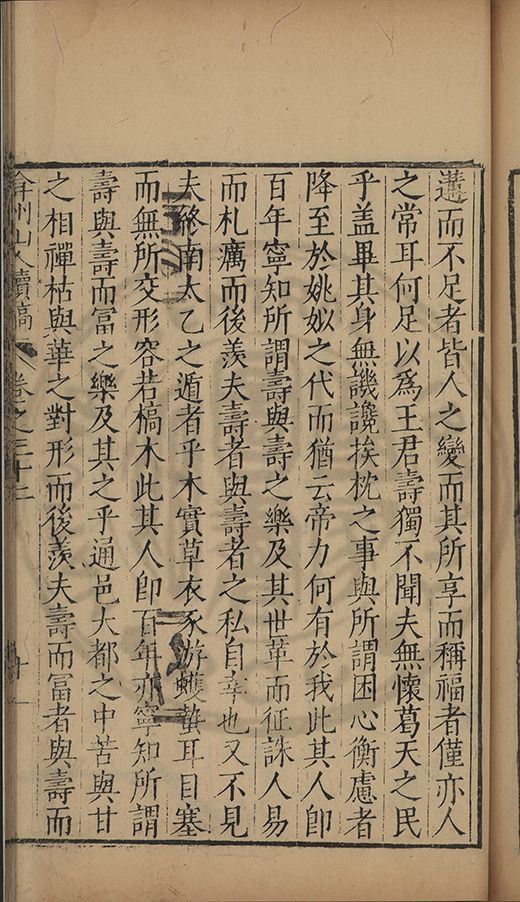 遘而不足者皆人之變而其所享而稱福者僅亦人
之常耳何足以為王君壽獨不聞夫無懷葛天之民
乎盖畢其身無譏讒挨枕之事與所謂困心衡慮者
降至於姚姒之代而猶云帝力何有於我此其人卽
百年寧知所謂壽與壽之樂及其世革而征誅人易
而札癘而後羨夫壽者與壽者之私自幸也又不見
夫終南太乙之遁者乎木實草衣豕游螻蟄耳目塞
而無所交形容若槁木此其人卽百年亦寧知所謂
壽與壽而冨之樂及其之乎通邑大都之中苦與甘
之相禪枯與華之對形而後羨夫壽而冨者與壽而
弇州山人續稿 卷之三十二 十